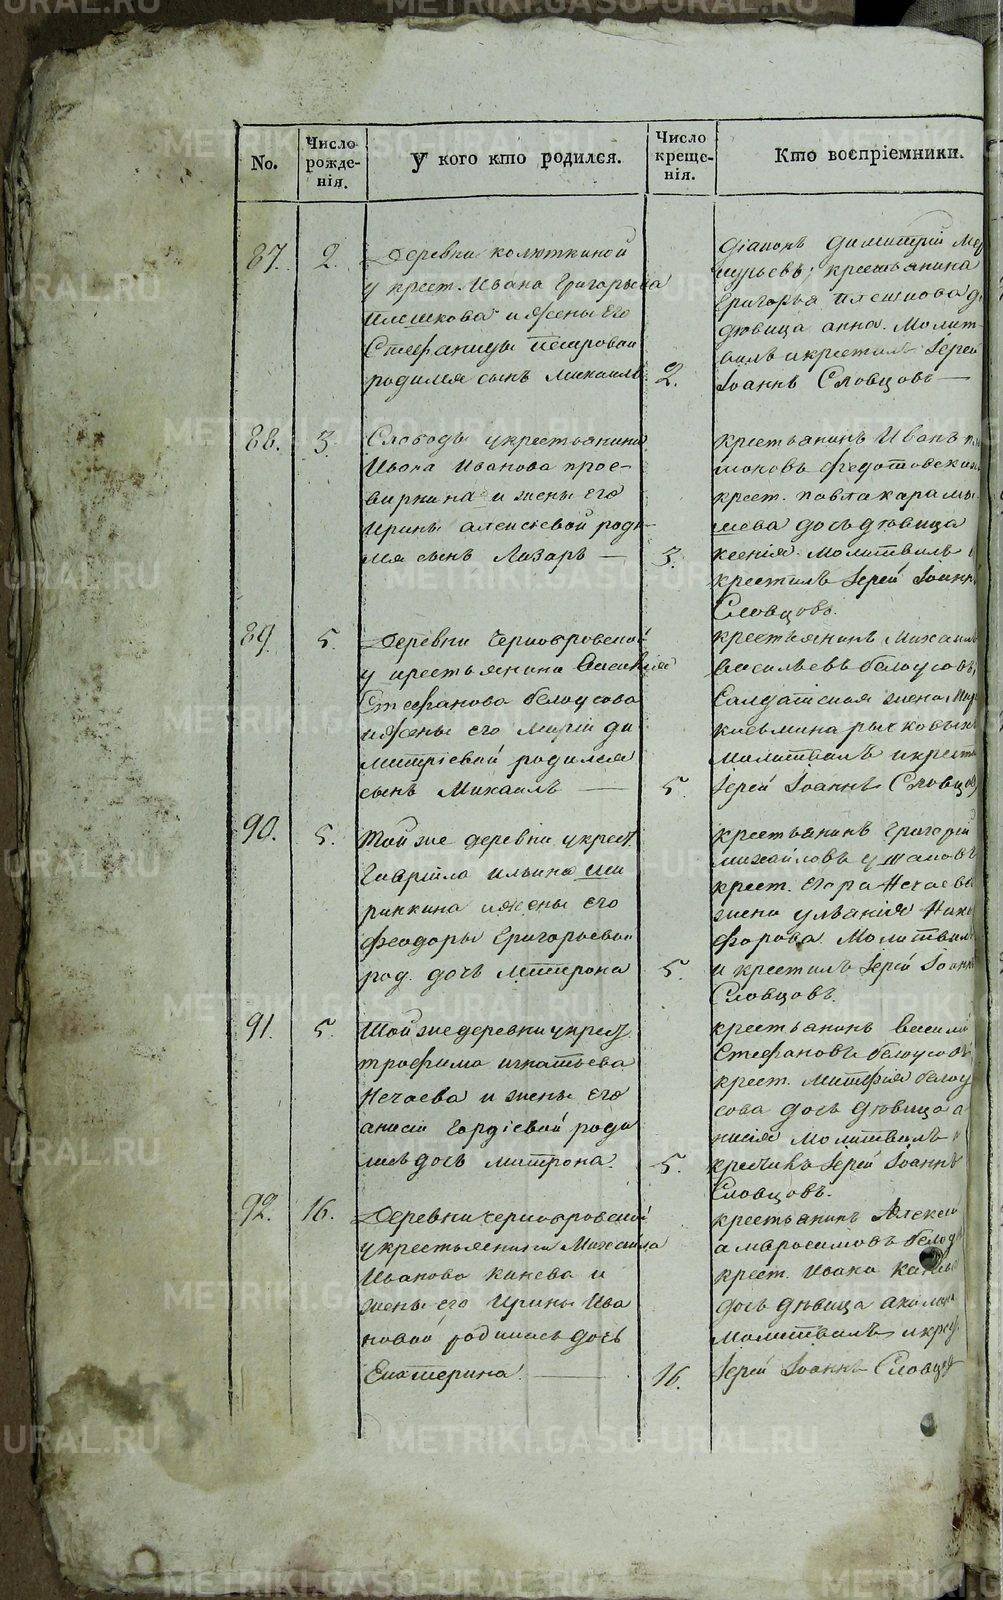 No.
Число рожденія.
У кого кто родился.
Число крещенія.
Кто воспріемники.
87. 2.
Деревни Колюткиной
у крест. Ивана Григорьева
Плешкова и жены его
Стефаниды Петровой
родился сынъ Михаилъ 2.
Діаконъ Димитрій
крестьянина
Григорья Плешкова
дѣвица Анна. Молит-
вилъ и крестилъ Іерей
Іоаннъ Словцовъ
88. 3.
Слободы у крестьянина
Ивана Иванова Прос-
вирнина и жены его
Ирины Алексѣевой роди-
лся сынъ Лазарь 3.
крестьянинъ Иванъ
крест. Павла Карамы-
шева дочь дѣвица
Ксенія. Молитвилъ и
крестилъ Іерей Іоаннъ
Словцовъ.
89. 5.
Деревни Чернояровской
у крестьянина Василія
Стефанова Белоусова
и жены его Маріи Ди
митріевой родился
сынъ Михаилъ 5.
крестьянинъ Михаилъ
Васильевъ Белоусовъ,
Салдатская жена
Молитвилъ и крести
Іерей Іоаннъ Словцов
90. 5.
Той же деревни у крест.
Гавріила Ильина Ши
ринкина и жены его
Феодоры Григорьевой
род. дочь Митрона 5.
крестьянинъ Григорій
Михайловъ Ушаковъ
крест. Егора Нечаева
жена Уліанія Ники
форова. Молитвилъ
и крестилъ Іерей Іоаннъ
Словцовъ.
91. 5.
Той же деревни у крест.
Трофима Игнатьева
Нечаева и жены его
Анисіи Гордіевой роди
лась дочь Митрона. 5.
крестьянинъ Василій
Стефановъ Белоусовъ
крест. Белоу
сова дочь дѣвица А
нисія Молитвилъ и
крестилъ Іерей Іоаннъ
Словцовъ.
92. 16.
Деревни Чернояровской
у крестьянина Михаила
Иванова Канева и
жены его Ирины Ива
новой родилась дочь
Екатерина. 16.
крестьянинъ Алексей
Амвросимовъ
крест. Ивана
дочь дѣвица
Молитвилъ и крес.
Іерей Іоаннъ Словцов
METRIKI.GASO-URAL.RU